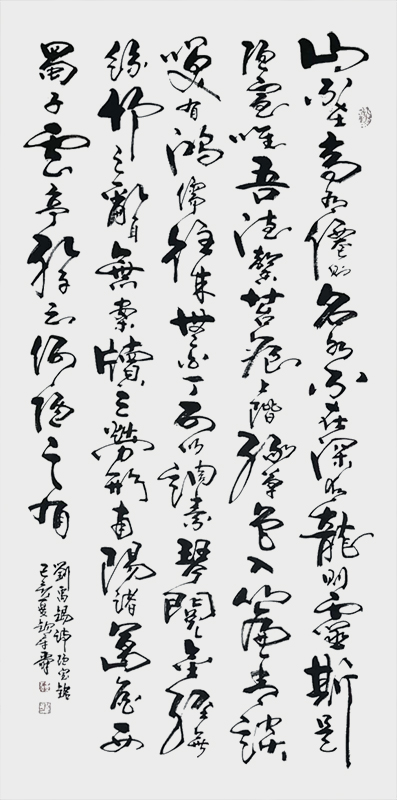 山不在高有僊則名水不在深有龍則靈斯是
陋室唯吾德馨苔痕上階綠草色入簾青談
笑有鴻儒往來無白丁可以調素琴閱金經無
絲竹之亂耳無案牘之勞形南陽諸葛廬西
蜀子雲亭孔子云何陋之有
劉禹錫陋室銘
己亥夏